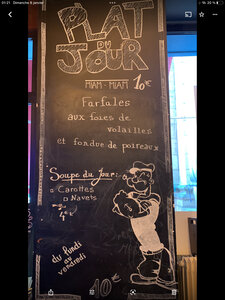 21:21 Dimanche 9 janvier
20 %
PLAT
DU
JOUR
MIAM - MIAM 10€
Farfales
aux foies de
volailles
et fondue de poireaux
Soupe du Jour:
Carottes
Navets
du lundi
au
vendredi
10€